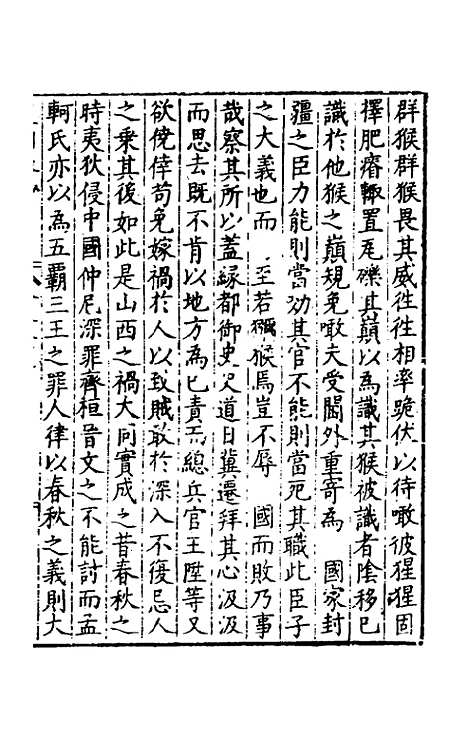 群猴群猴畏其威徃徃相率跪伏以待噉彼猩猩固
擇肥瘠輙置瓦礫其巔以為識其猴被識者陰移已
識於他猴之巔規免噉夫受閫外重寄為　國家封
疆之臣力能則當効其官不能則當死其職此臣子
之大義也而　至若獼猴焉豈不辱　國而敗乃事
哉察其所以蓋緣都御史文道日冀遷拜其心汲汲
而思去既不肯以地方為己責而總兵官王陞等又
欲僥倖苟免嫁禍於人以致賊敢於深入不復忌人
之乗其後如此是山西之禍大同實成之昔春秋之
時夷狄侵中國仲尼深罪齊桓晋文之不能討而孟
軻氏亦以為五覇三王之罪人律以春秋之義則大